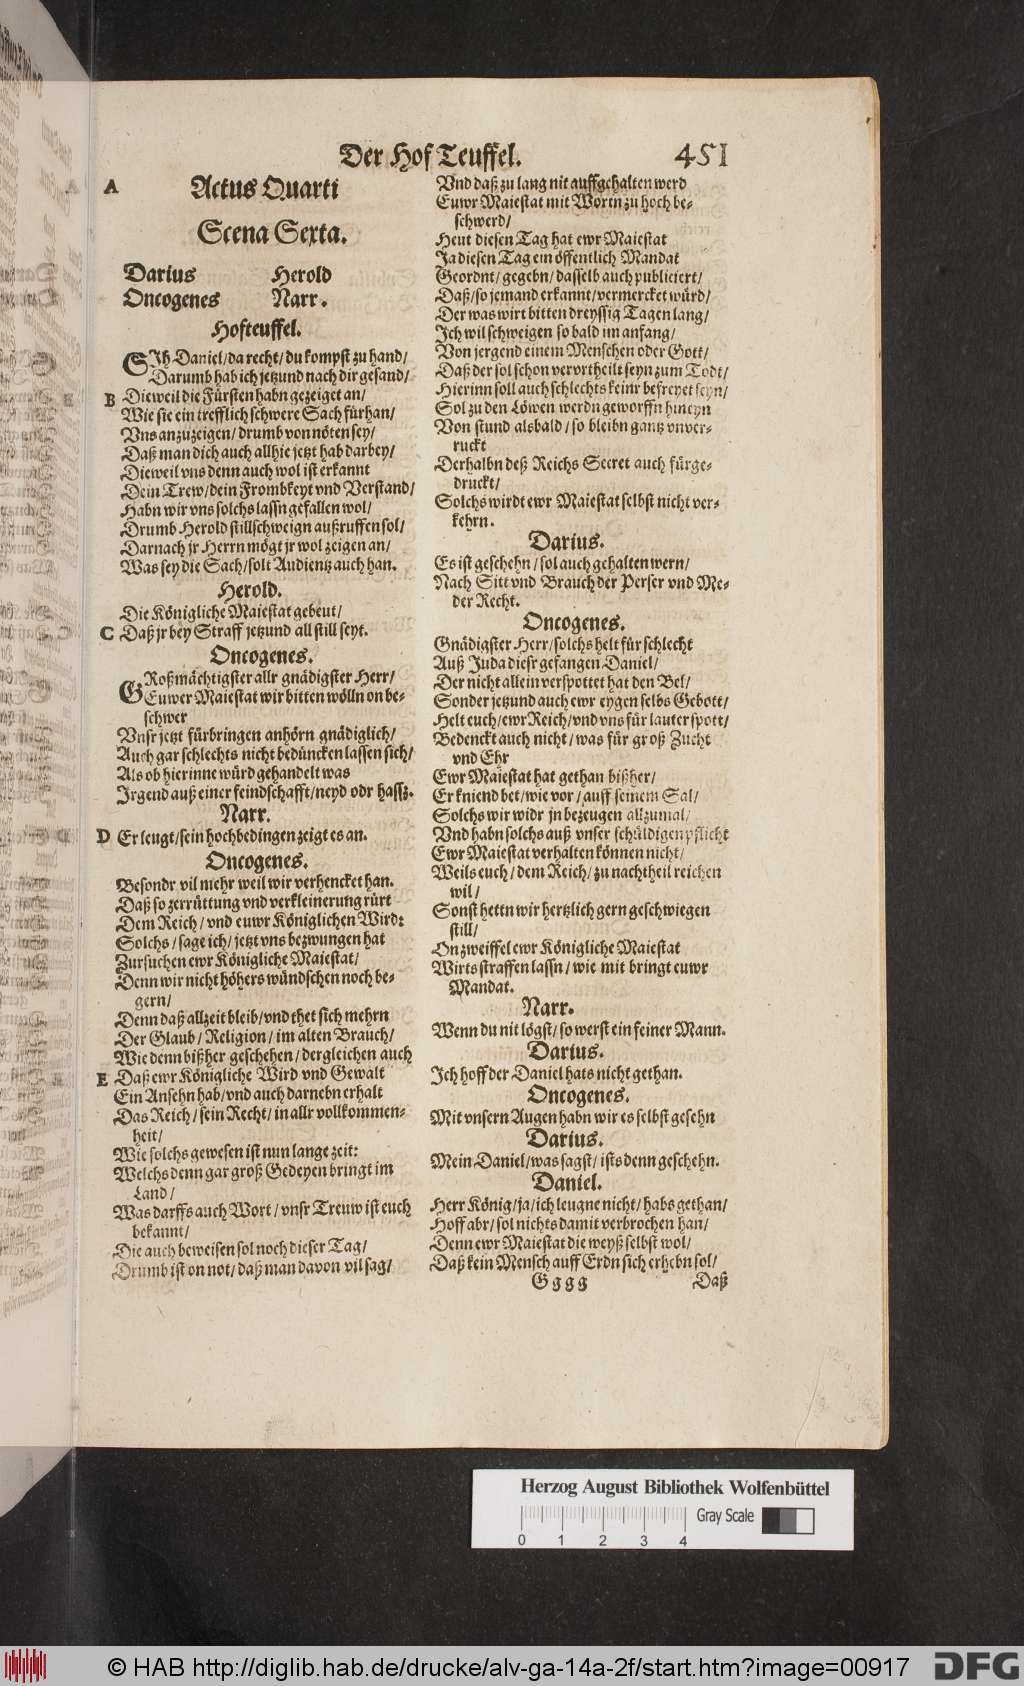 Der Hof Teuffel. 451
A Actus Quarti
Scena Sexta.
Darius Herold
Oncogenes Narr.
Hofteuffel.
SIh Daniel/ da recht/ du kompst zu hand/
Darumb hab ich jetzund nach dir gesand/
B Dieweil die Fürsten habn gezeiget an/
Wie sie ein trefflich schwere Sach fürhan/
Vns anzuzeigen/ drumb von nöten sey/
Daß man dich auch allhie jetzt hab darbey/
Dieweil vns denn auch wol ist erkannt
Dein Trew/ dein Frombkeyt vnd Verstand/
Habn wir vns solchs lassn gefallen wol/
Drumb Herold stillschweign außruffen sol/
Darnach jr Herrn mögt jr wol zeigen an/
Was sey die Sach/ solt Audientz auch han.
Herold.
Die Königliche Maiestat gebeut/
C Daß jr bey Straff jetzund all still seyt.
Oncogenes.
GRoßmächtigster allr gnädigster Herr/
Euwer Maiestat wir bitten wölln on be-
schwer
Vnsr jetzt fürbringen anhörn gnädiglich/
Auch gar schlechts nicht bedüncken lassen sich/
Als ob hierinne würd gehandelt was
Irgend auß einer feindschafft/ neyd odr hassz.
Narr.
D Er leugt/ sein hochbedingen zeigt es an.
Oncogenes.
Besondr vil mehr weil wir verhencket han.
Daß so zerrüttung vnd verkleinerung rürt
Dem Reich/ vnd euwr Königlichen Wird:
Solchs/ sage ich/ jetzt vns bezwungen hat
Zursuchen ewr Königliche Maiestat/
Denn wir nicht höhers wündschen noch be-
gern/
Denn daß allzeit bleib/ vnd thet sich mehrn
Der Glaub/ Religion/ im alten Brauch/
Wie denn bißher geschehen/ dergleichen auch
E Daß ewr Königliche Wird vnd Gewalt
Ein Ansehn hab/ vnd auch darnebn erhalt
Das Reich/ sein Recht/ in allr vollkommen-
heit/
Wie solchs gewesen ist nun lange zeit:
Welchs denn gar groß Gedeyen bringt im
Land/
Was darffs auch Wort/ vnsr Treuw ist euch
bekannt/
Die auch beweisen sol noch dieser Tag/
Drumb ist on not/ daß man davon vil sag/
Vnd daß zu lang nit auffgehalten werd
Euwr Maiestat mit Wortn zu hoch be-
schwerd/
Heut diesen Tag hat ewr Maiestat
Ja diesen Tag ein öffentlich Mandat
Geordnt/ gegebn/ dasselb auch publiciert/
Daß/ so jemand erkannt/ vermercket würd/
Der was wirt bitten dreyssig Tagen lang/
Ich wil schweigen so bald im anfang/
Von jergend einem Menschen oder Gott/
Daß der sol schon vervrtheilt seyn zum Todt/
Hierinn soll auch schlechts keinr befreyet seyn/
Sol zu den Löwen werdn geworffn hineyn
Von stund alsbald/ so bleibn gantz vnver-
ruckt
Derhalbn deß Reichs Secret auch fürge-
druckt/
Solchs wirdt ewr Maiestat selbst nicht ver-
kehrn.
Darius.
Es ist geschehn/ sol auch gehalten wern/
Nach Sitt vnd Brauch der Perser vnd Me-
der Recht.
Oncogenes.
Gnädigster Herr/ solchs helt für schlecht
Auß Juda diesr gefangen Daniel/
Der nicht allein verspottet hat den Bel/
Sonder jetzund auch ewr eygen selbs Gebott/
Helt euch/ ewr Reich/ vnd vns für lauter spott/
Bedenckt auch nicht/ was für groß Zucht
vnd Ehr
Ewr Maiestat hat gethan bißher/
Er kniend bet/ wie vor/ auff seinem Sal/
Solchs wir widr jn bezeugen allzumal/
Vnd habn solchs auß vnser schüldigen pflicht
Ewr Maiestat verhalten können nicht/
Weils euch/ dem Reich/ zu nachtheil reichen
wil/
Sonst hettn wir hertzlich gern geschwiegen
still/
Onzweiffel ewr Königliche Maiestat
Wirts straffen lassn/ wie mit bringt euwr
Mandat.
Narr.
Wenn du nit lögst/ so werst ein feiner Mann.
Darius.
Ich hoff der Daniel hats nicht gethan.
Oncogenes.
Mit vnsern Augen habn wir es selbst gesehn
Darius.
Mein Daniel/ was sagst/ ists denn geschehn.
Daniel.
Herr König/ ja/ ich leugne nicht/ habs gethan/
Hoff abr/ sol nichts damit verbrochen han/
Denn ewr Maiestat die weyß selbst wol/
Daß kein Mensch auff Erdn sich erhebn sol/
Gggg Daß
Herzog August Bibliothek Wolfenbüttel
Gray Scale
0 1 2 3 4
© HAB http://diglib.hab.de/drucke/alv-ga-14a-2f/start.htm?image=00917
DFG